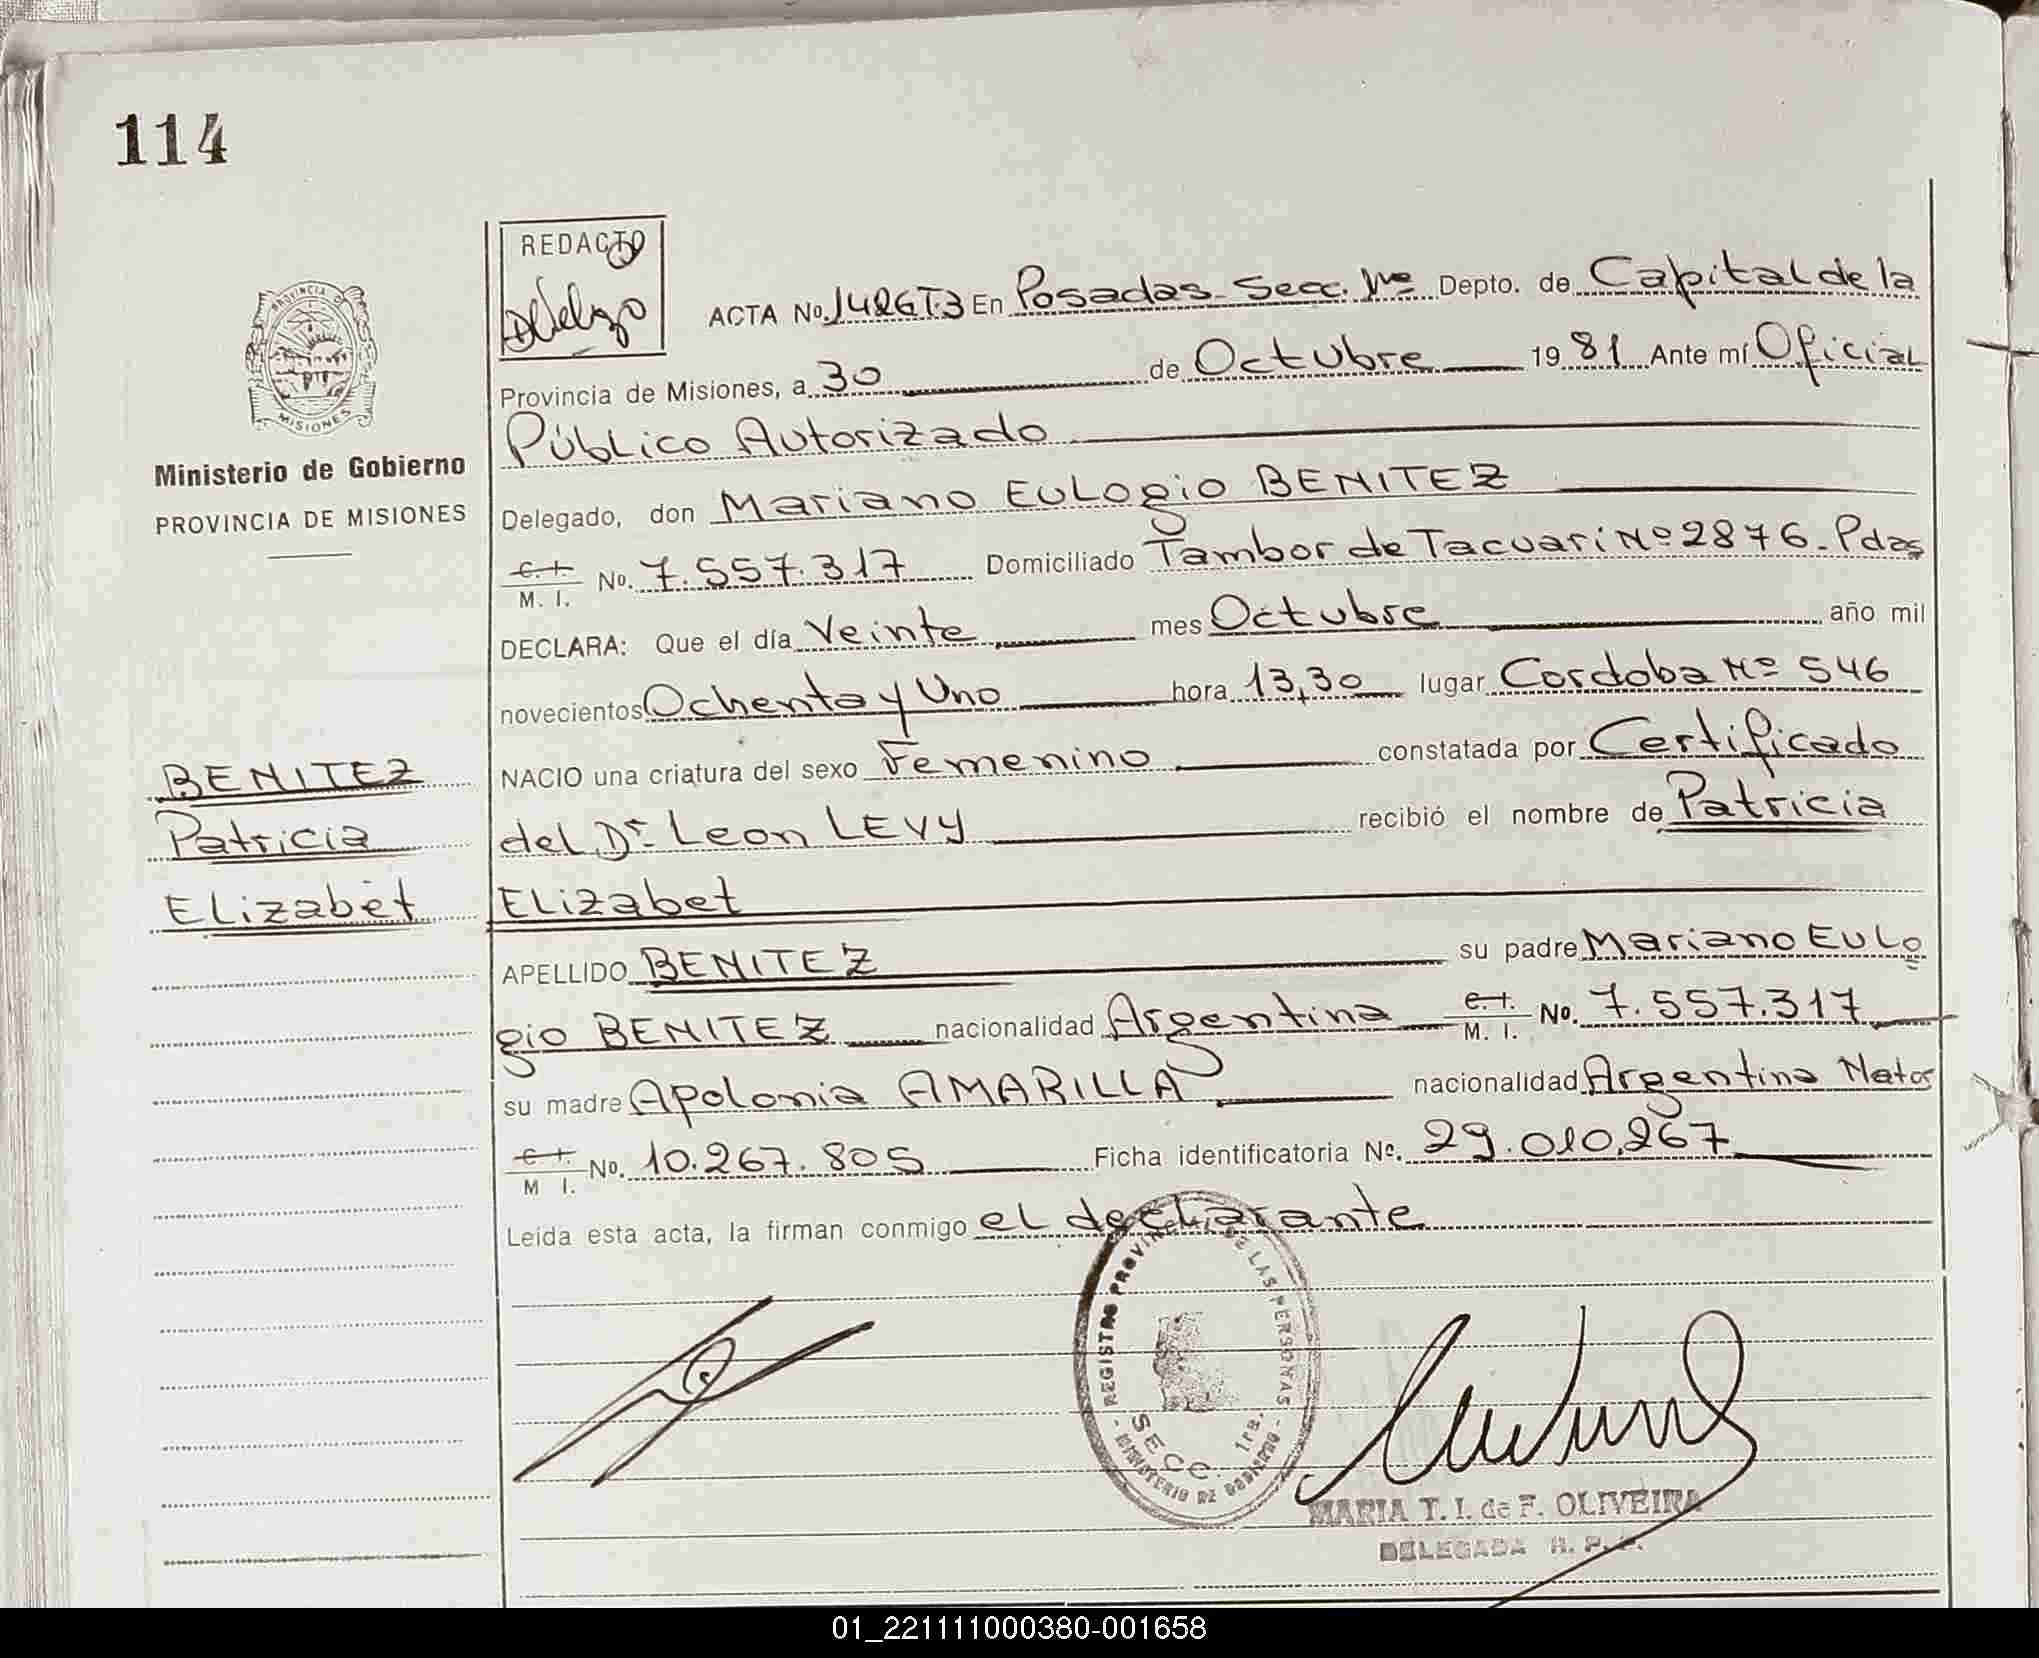 114
REDACTO
PROVINCIA DE
MISIONES
Ministerio de Gobierno
PROVINCIA DE MISIONES
BENITEZ
Patricia
Elizabet
ACTA No. 142GT3 En Posadas - Secc. 1ra Depto. de Capital de la
Provincia de Misiones, a 30 de Octubre 19 81 Ante mí Oficial
Público Autorizado
Delegado, don Mariano Eulogio BENITEZ
C. I. M. I. No. 7.557.317 Domiciliado Tambor de Tacuari Nº 2876 - Pdas
DECLARA: Que el día Veinte mes Octubre año mil
novecientos Ochenta y Uno hora 13,30 lugar Cordoba Nº 546
NACIO una criatura del sexo Femenino constatada por Certificado
del Dr. Leon LEVY recibió el nombre de Patricia
Elizabet
APELLIDO BENITEZ su padre Mariano Eulo
gio BENITEZ nacionalidad Argentina C. I. M. I. No. 7.557.317
su madre Apolonia AMARILLA nacionalidad Argentina Natos
C. I. M. I. No. 10.267.805 Ficha identificatoria No. 29.010.267
Leída esta acta, la firman conmigo el declarante
REGISTRO PROVINCIAL DE LAS PERSONAS
SECC. 1ra.
- MINISTERIO DE GOBIERNO -
MARIA T. I. de F. OLIVEIRA
DELEGADA R. P. P.
01_221111000380-001658